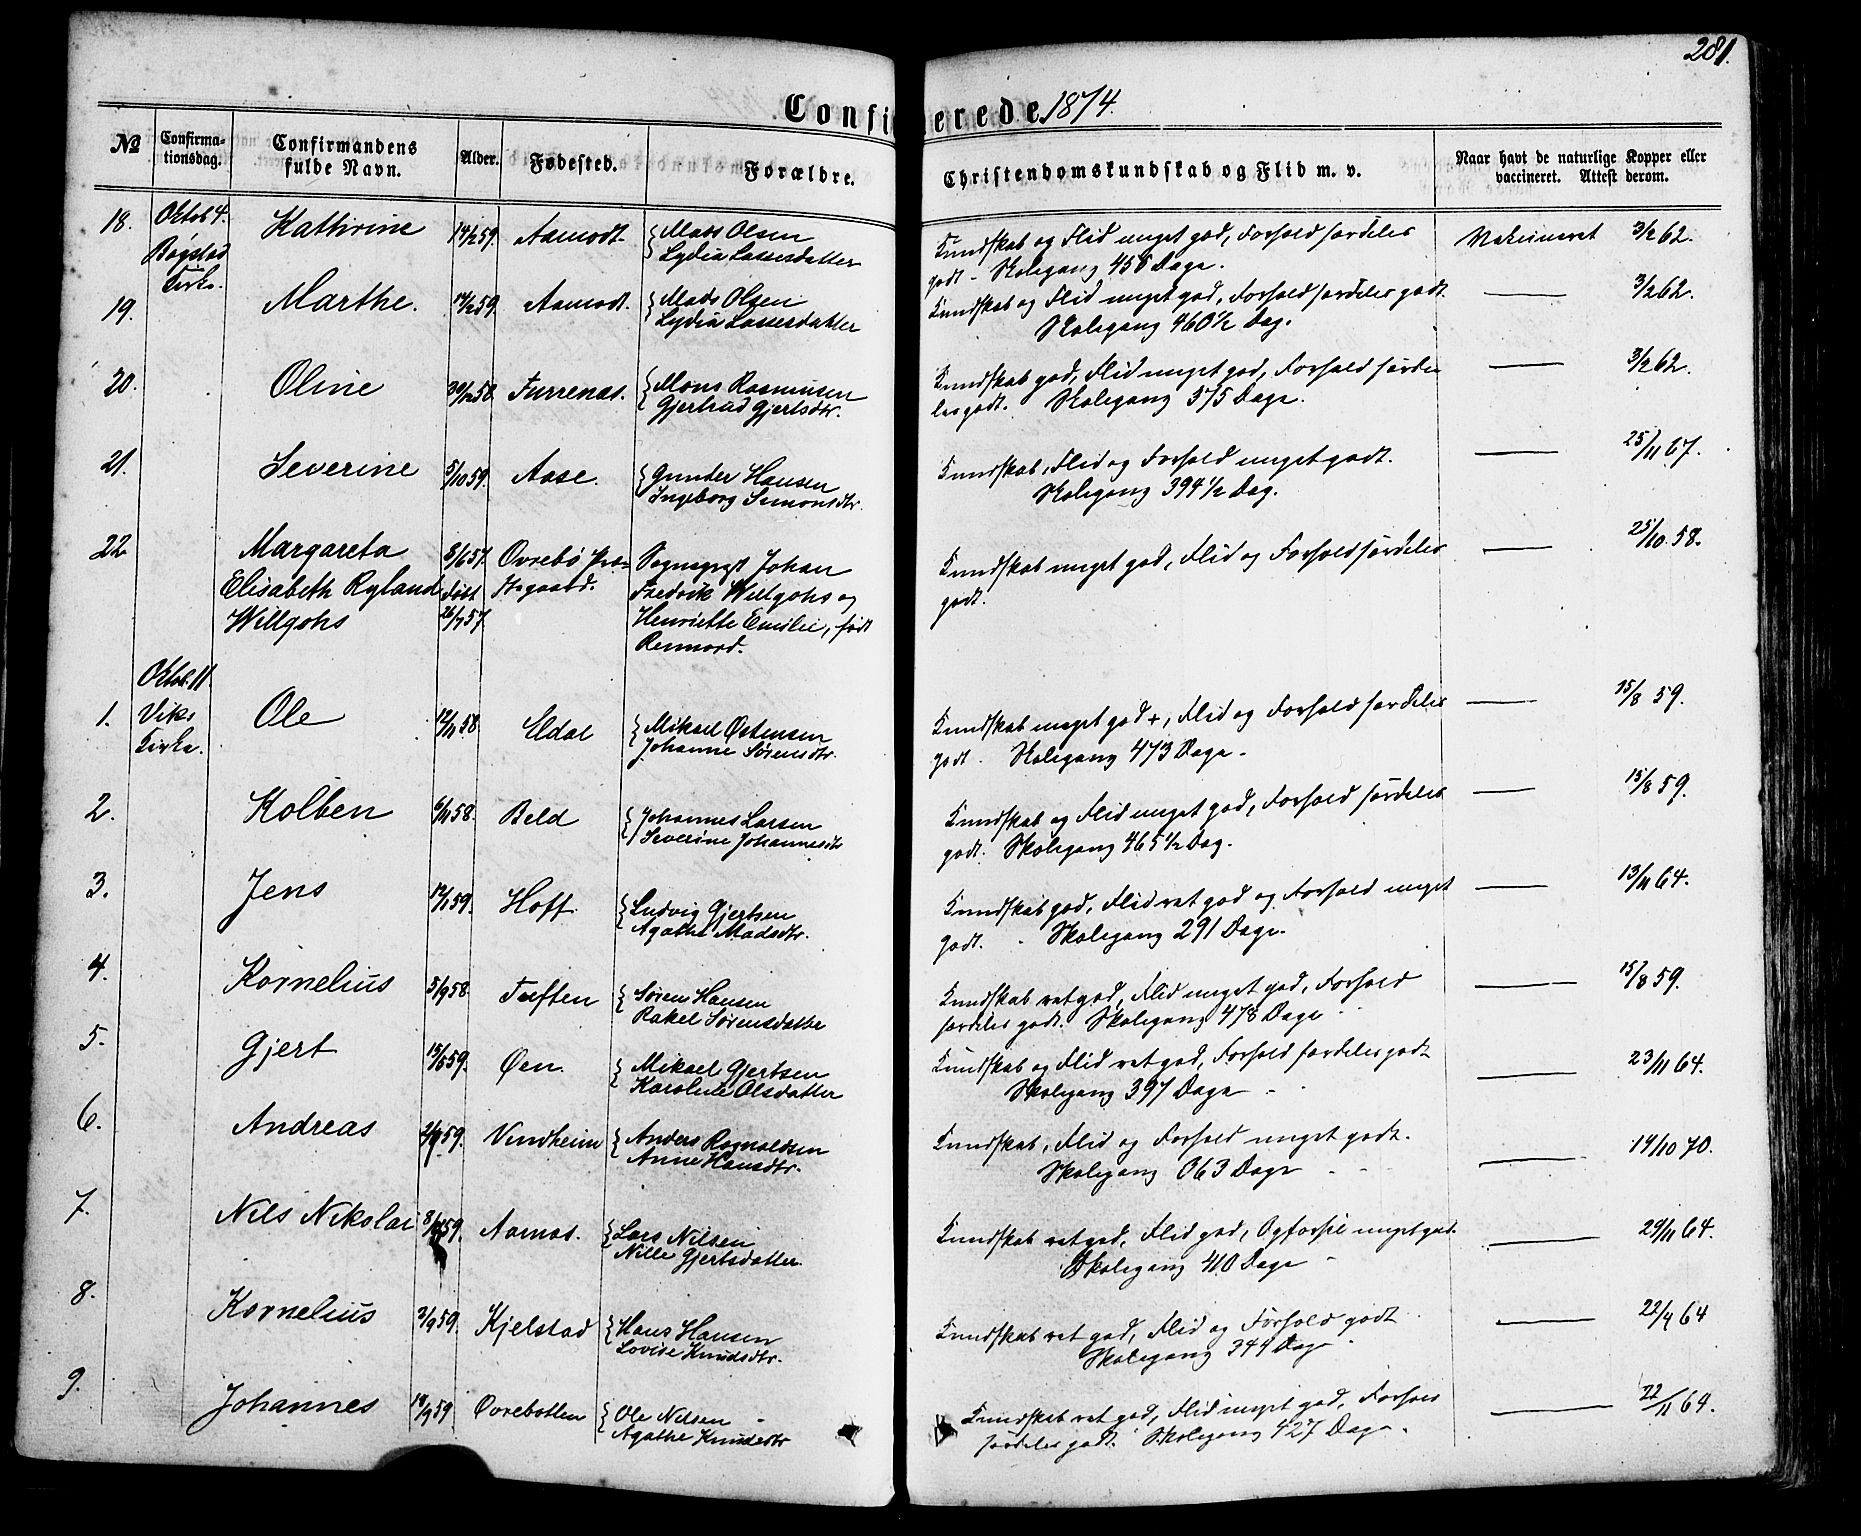 281.
Confirmerede 1874.
No Confirmationsdag. Confirmandens fulde Navn. Alder. Fødested. Forældre. Christendomskundskab og Flid m. v. Naar havt de naturlige Kopper eller vaccineret. Attest derom.
18. Oktob 4. Kathrine 14/2 59. Aamodt. Mads Olsen Kundskab og Flid meget god, Forhold særdeles Vakcineret 3/2 62.
Bogstad Kirke. Lydia Lassesdatter godt - Skolegang 458 Dage.
19. Marthe. 14/2 59. Aamodt. Mads Olsen Kundskab og Flid meget god, Forhold særdeles godt. — 3/2 62.
Lydia Lassesdatter Skolegang 460 1/2 Dag.
20. Oline 30/12 58. Furrenes. Mons Rasmusen Kundskab god, Flid meget god, Forhold særde — 3/2 62.
Gjertrud Gjertsdtr. les godt. Skolegang 375 Dage.
21. Severine 5/10 59. Aase. Gunder Hansen Kundskab, Flid og Forhold meget godt. — 25/11 67.
Ingeborg Simonsdtr. Skolegang 394 1/2 Dag.
22 Margareta 3/6 57. Øvrebø Præ= Sogneprest Johan Kundskab meget god, Flid og Forhold særdeles — 25/10 58.
Elisabeth Ryland født stegaard. Fredrik Willgohs og godt.
Willgohs 26/7 57. Henriette Emilie, født
Rennord.
Oktob. 11
1. Viks Ole 12/11 58. Eldal Mikael Østensen Kundskab meget god +, Flid og Forhold særdeles — 15/8 59.
Kirke. Johanne Sørensdtr. godt. Skolegang 473 Dage -
2. Kolben 6/11 58. Beld Johannes Larsen Kundskab og Flid meget god, Forhold særdeles — 15/8 59.
Severine Johannesdtr godt. Skolegang 465 1/2 Dag.
3. Jens 12/1 59. Hoff. Ludvig Gjertsen Kundskab god, Flid ret god og Forhold meget — 13/11 64.
Agathe Madsdtr. godt. - Skolegang 291 Dage.
4. Kornelius 5/9 58. Tæften Søren Hansen Kundskab ret god, Flid meget god, Forhold — 15/8 59.
Rakel Sørensdatter særdeles godt. Skolegang 478 Dage
5. Gjert 15/5 59. Øen. Mikael Gjertsen Kundskab og Flid ret god, Forhold særdeles godt — 23/11 64.
Karoline Olsdatter Skolegang 397 Dage -
6. Andreas 2/9 59. Vindheim Anders Ragnaldsen Kundskab, Flid og Forhold meget godt. — 14/10 70.
Anne Hansdtr. Skolegang 363 Dage
7. Nils Nikolai 8/ 59. Aarnes. Lars Nilsen Kundskab ret god, Flid god, Opførsel meget god. — 29/11 64.
Nille Gjertsdatter. Skolegang 410 Dage -
8. Kornelius 3/9 59. Kjelstad Hans Hansen Kundskab ret god, Flid og Forhold godt — 22/4 64
Lovise Knudsdtr. Skolegang 344 Dage
9. Johannes 14/9 59 Øvrebotten Ole Nilsen Kundskab ret god, Flid meget god, Forhold — 22/11 64.
Agathe Knudsdtr særdeles godt. Skolegang 427 Dage.